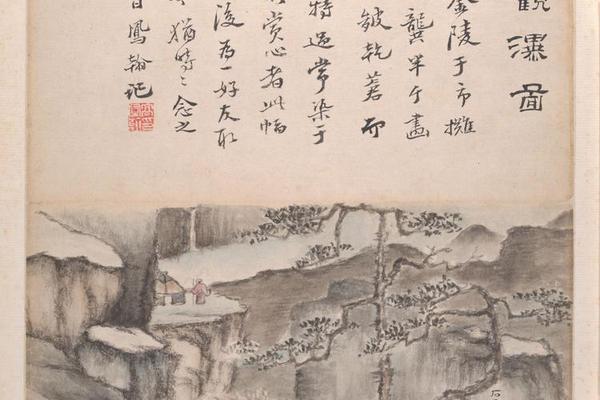 觀瀑圖
金陵于市攤
龔半千畫
皴乾而
特迥常染于
賞心者此幅
後為一好友取
猶時〻念之
日鳳翰記
石